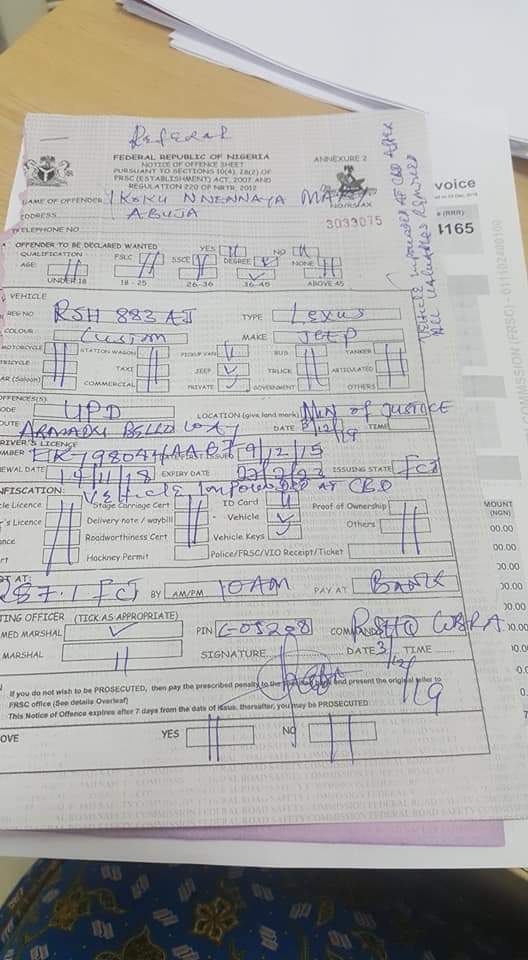 Referral
FEDERAL REPUBLIC OF NIGERIA
NOTICE OF OFFENCE SHEET
PURSUANT TO SECTIONS 10(4), 28(2) OF
FRSC (ESTABLISHMENT) ACT, 2007 AND
REGULATION 220 OF NRTR, 2012
ANNEXURE 2
NAME OF OFFENDER IKOKU NNENNAYA MARY
ADDRESS ABUJA
3033075
TELEPHONE NO
Vehicle impounded AT CBD After All Valuables Removed
voice
(RRR)
4165
OFFENDER TO BE DECLARED WANTED YES NO
QUALIFICATION FSLC SSCE DEGREE NONE
AGE: UNDER 18 18 - 25 26-35 36-45 ABOVE 45
VEHICLE
REG NO RSH 883 AJ TYPE Lexus
COLOUR Custom MAKE JEEP
MOTORCYCLE STATION WAGON PICKUP VAN BUS TANKER
TRICYCLE TAXI JEEP TRUCK ARTICULATED
CAR (Saloon) COMMERCIAL PRIVATE GOVERNMENT OTHERS
OFFENCES(S)
CODE UPD LOCATION (give land mark) MIN OF JUSTICE
ROUTE AHMADU BELLO WAY DATE 3/12/19 TIME
DRIVER'S LICENCE
NUMBER
RENEWAL DATE EXPIRY DATE ISSUING STATE FCT
CONFISCATION: Vehicle Impounded AT CBD
Vehicle Licence Stage Carriage Cert ID Card Proof of Ownership
Driver's Licence Delivery note / waybill Vehicle Others
Insurance Roadworthiness Cert Vehicle Keys
Cert Hackney Permit Police/FRSC/VIO Receipt/Ticket
AT: FCT BY AM/PM 10AM PAY AT BANK
(TICK AS APPROPRIATE)
MARSHAL PIN COMMAND RSHQ
MARSHAL SIGNATURE DATE 3/12/19 TIME
If you do not wish to be PROSECUTED, then pay the prescribed penalty to the and present the original teller to
FRSC office (See details Overleaf)
This Notice of Offence expires after 7 days from the date of issue, thereafter, you may be PROSECUTED
YES NO
AMOUNT
(NGN)